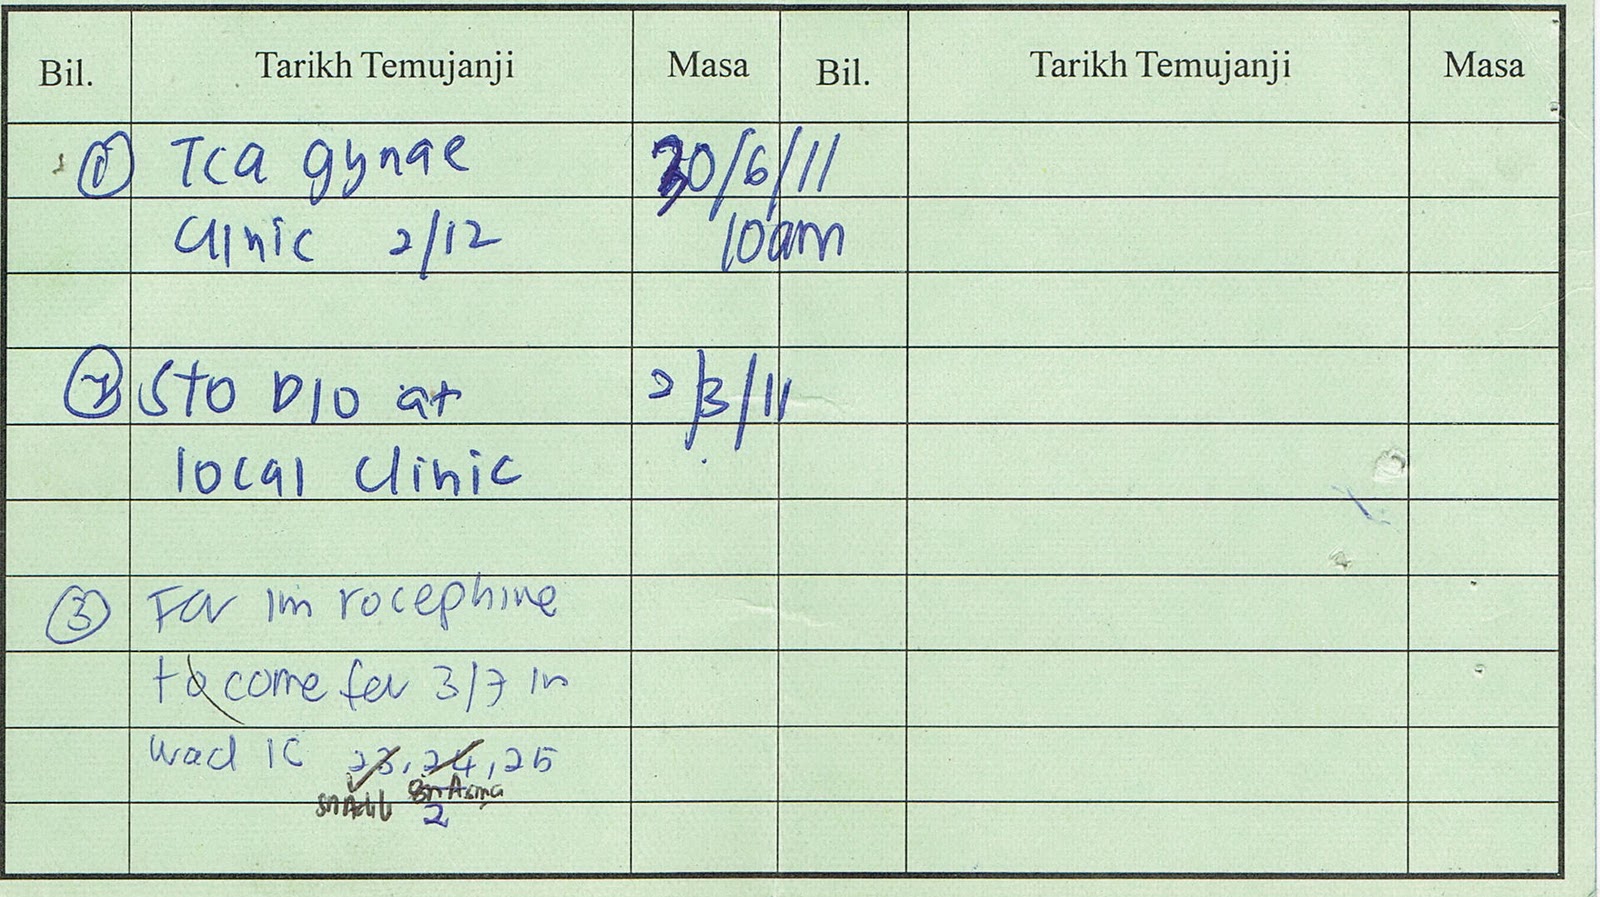 Bil. Tarikh Temujanji Masa Bil. Tarikh Temujanji Masa
① Tca gynae 30/6/11
Clinic 2/12 10am
② STO D10 at 2/3/11
local clinic
③ For Im rocephine
to come for 3/7 in
wad 1C 23, 24, 25
2